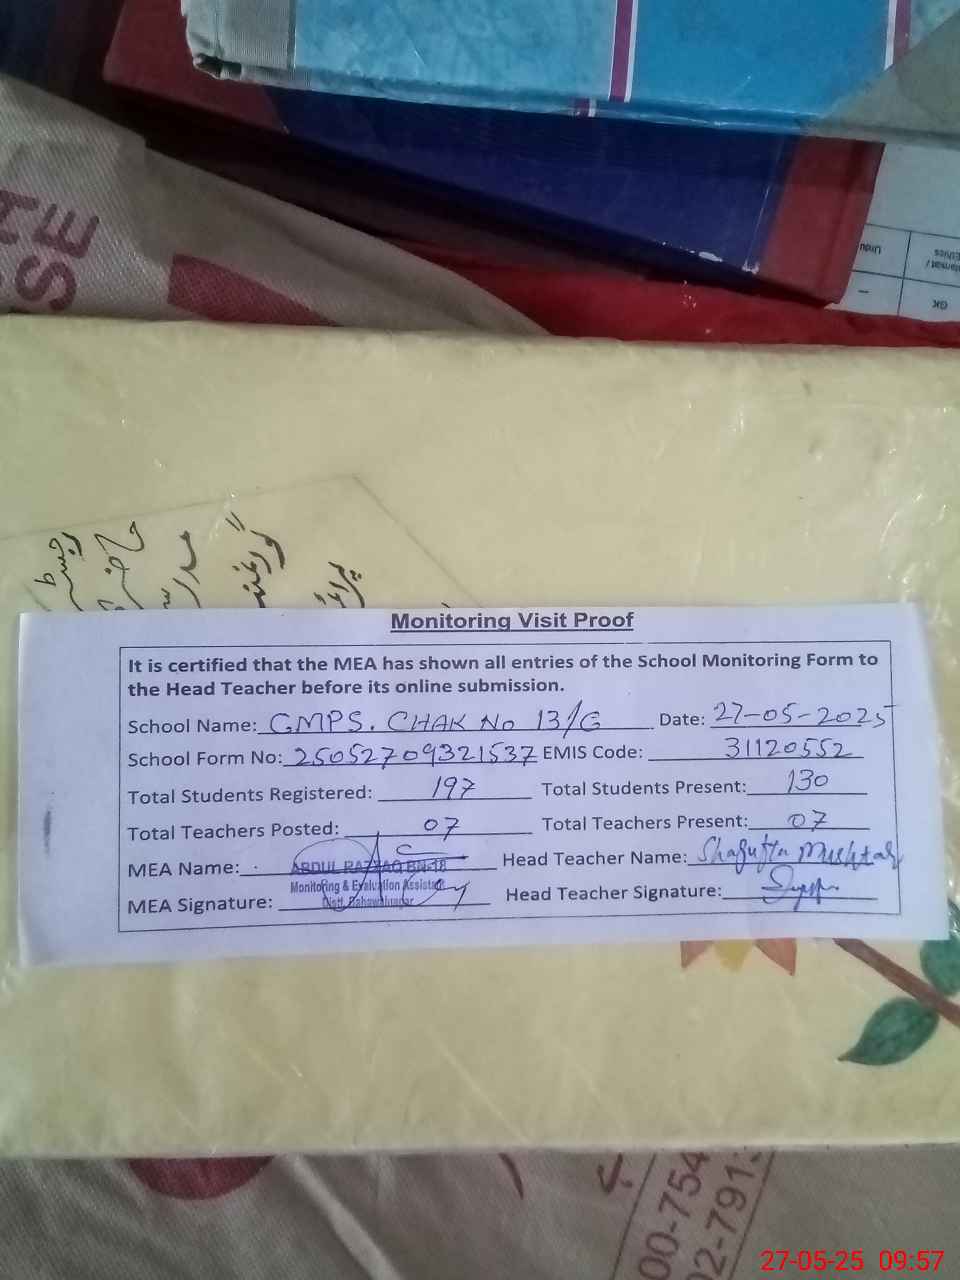 SE
Urdu
Islamiat /
Ethics
GK
رجسٹر
حاضری
مدرسہ
گورنمنٹ
Monitoring Visit Proof
It is certified that the MEA has shown all entries of the School Monitoring Form to
the Head Teacher before its online submission.
School Name: GMPS. CHAK No 13/G Date: 27-05-2025
School Form No: 25052709321537 EMIS Code: 31120552
Total Students Registered: 197 Total Students Present: 130
Total Teachers Posted: 07 Total Teachers Present: 07
MEA Name: ABDUL RAZZAQ BN-18 Head Teacher Name: Shagufta Mushtaq
Monitoring & Evaluation Assistant
Distt. Bahawalnagar
MEA Signature: Head Teacher Signature:
00-754
02-791
27-05-25 09:57